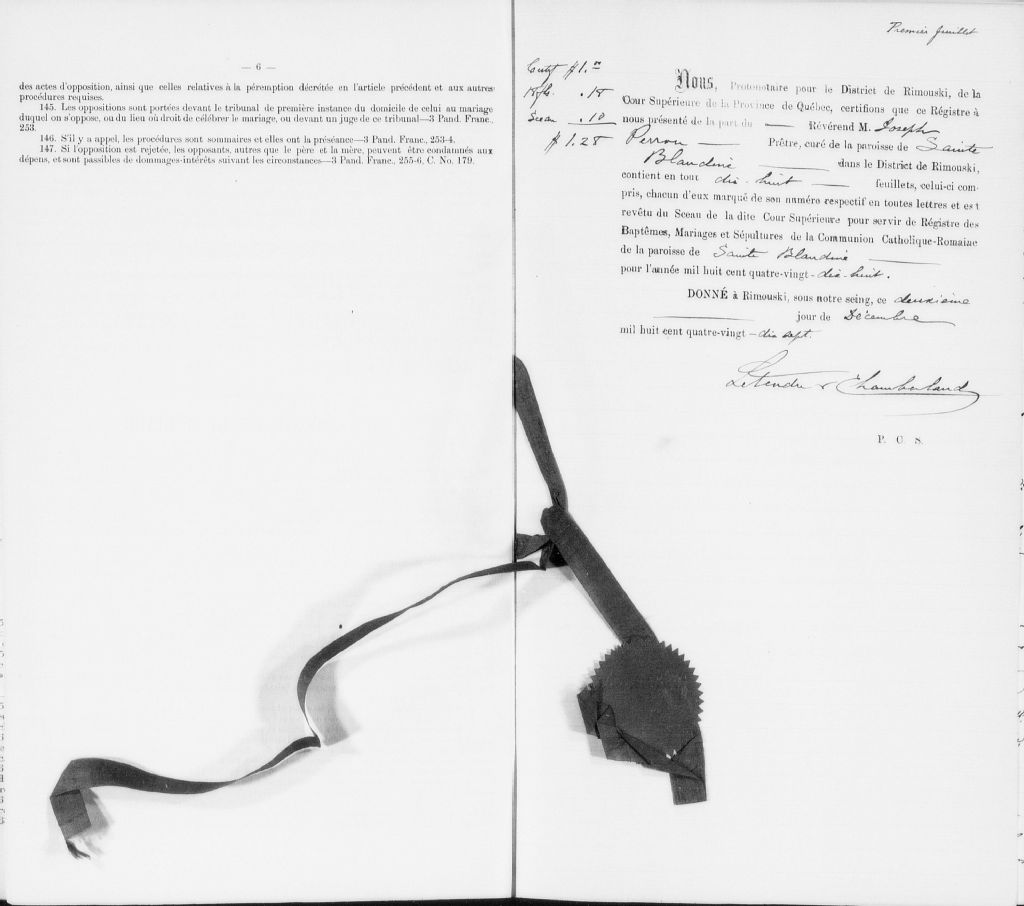 — 6 —
des actes d'opposition, ainsi que celles relatives à la péremption décrétée en l'article précédent et aux autres
procédures requises.
145. Les oppositions sont portées devant le tribunal de première instance du domicile de celui au mariage
duquel on s'oppose, ou du lieu où droit de célébrer le mariage, ou devant un juge de ce tribunal—3 Pand. Franc.,
253.
146. S'il y a appel, les procédures sont sommaires et elles ont la préséance—3 Pand. Franc., 253-4.
147. Si l'opposition est rejetée, les opposants, autres que le père et la mère, peuvent être condamnés aux
dépens, et sont passibles de dommages-intérêts suivant les circonstances—3 Pand. Franc., 255-6, C. No. 179.
Premier feuillet
$1.00
.18
Sceau .10
$1.28
Nous, Protonotaire pour le District de Rimouski, de la
Cour Supérieure de la Province de Québec, certifions que ce Régistre à
nous présenté de la part du — Révérend M. Joseph
Perron — Prêtre, curé de la paroisse de Sainte
Blandine — dans le District de Rimouski,
contient en tout dix-huit — feuillets, celui-ci com-
pris, chacun d'eux marqué de son numéro respectif en toutes lettres et est
revêtu du Sceau de la dite Cour Supérieure pour servir de Régistre des
Baptêmes, Mariages et Sépultures de la Communion Catholique-Romaine
de la paroisse de Sainte Blandine —
pour l'année mil huit cent quatre-vingt-dix-huit.
DONNÉ à Rimouski, sous notre seing, ce deuxième
— jour de Décembre
mil huit cent quatre-vingt—dix sept.
Letendre & Chamberland
P. C. S.